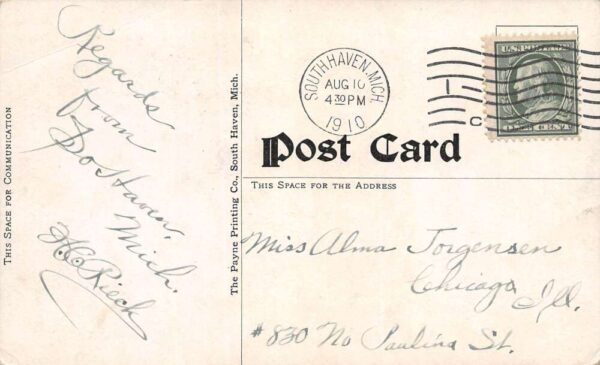 THIS SPACE FOR COMMUNICATION
Regards
from
So Haven,
Mich.
H.C. Rieck
The Payne Printing Co., South Haven, Mich.
SOUTH HAVEN, MICH.
AUG 10
4 30 PM
1910
U.S. POSTAGE
Post Card
THIS SPACE FOR THE ADDRESS
Miss Alma Jorgensen
Chicago Ill.
#830 No Paulina St.